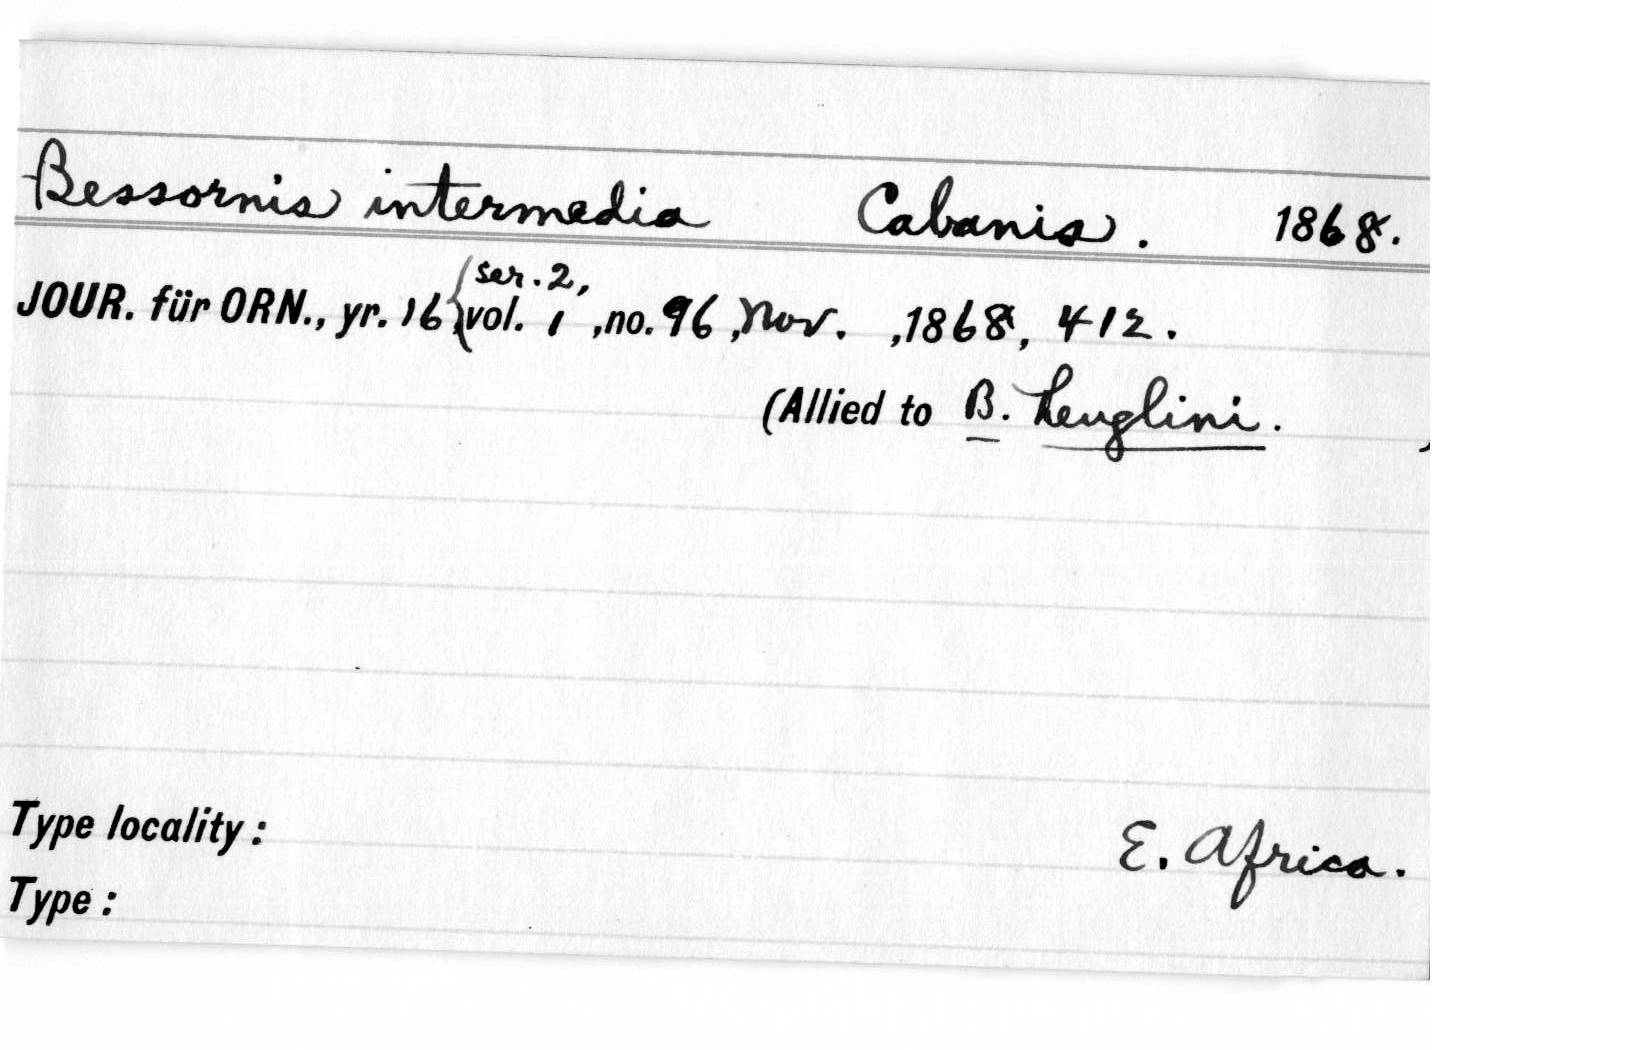 Bessornis intermedia Cabanis. 1868.
JOUR. für ORN., yr. 16, {ser. 2, vol. 1, no. 96, Nov. , 1868, 412.
(Allied to B. heuglini. )
Type locality: E. Africa.
Type: